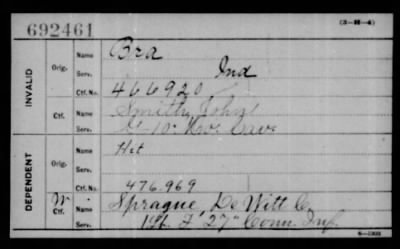 692461
(3-H-4)
INVALID
Orig.
Name
Bra
Serv.
Ind
Ctf. No.
466920
Ctf.
Name
Smith, John
Serv.
10" Mo. Cav.
DEPENDENT
Orig.
Name
Het
Serv.
Ctf. No.
476.969
W
Ctf.
Name
Sprague, De Witt C.
Serv.
1st Lt. F 27" Conn. Inf.